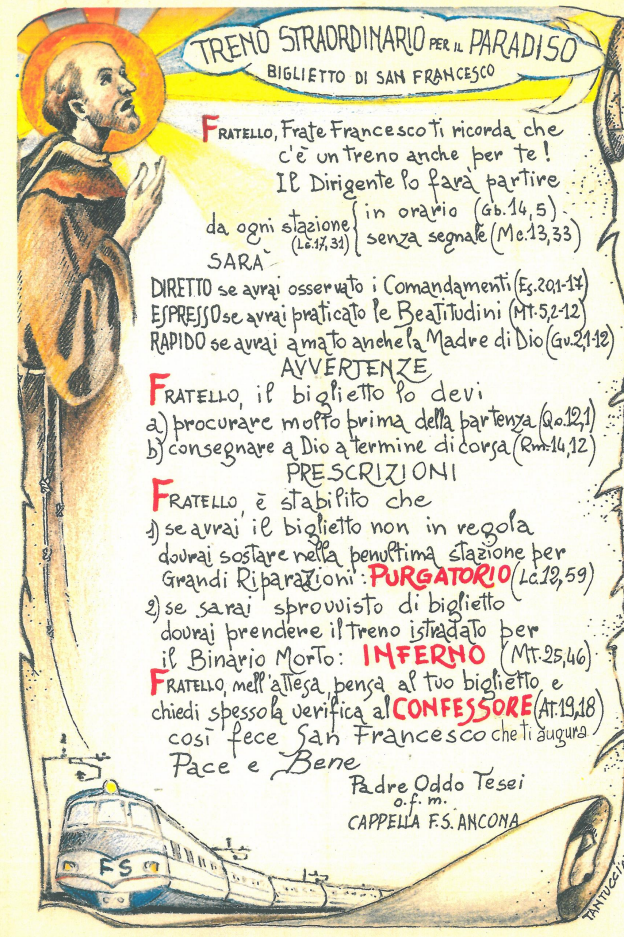 TRENO STRAORDINARIO PER IL PARADISO
BIGLIETTO DI SAN FRANCESCO
FRATELLO, Frate Francesco Ti ricorda che
c'è un Treno anche per te!
Il Dirigente lo farà partire
da ogni stazione (Lc.17,31)
in orario (Gb.14,5)
senza segnale (Mc.13,33)
SARÀ
DIRETTO se avrai osservato i Comandamenti (Es.20,1-17)
ESPRESSO se avrai praticato le Beatitudini (MT.5,2-12)
RAPIDO se avrai amato anche la Madre di Dio (Gv.2,1-12)
AVVERTENZE
FRATELLO, il biglietto lo devi
a) procurare molto prima della partenza (Qo.12,1)
b) consegnare a Dio a termine di corsa (Rm.14,12)
PRESCRIZIONI
FRATELLO, è stabilito che
1) se avrai il biglietto non in regola
dovrai sostare nella penultima stazione per
Grandi Riparazioni: PURGATORIO (Lc.12,59)
2) se sarai sprovvisto di biglietto
dovrai prendere il treno istradato per
il Binario Morto: INFERNO (MT.25,46)
FRATELLO, nell'attesa, pensa al tuo biglietto e
chiedi spesso la verifica al CONFESSORE (AT.19,18)
così fece San Francesco che ti augura
Pace e Bene
Padre Oddo Tesei
o.f.m.
CAPPELLA F.S. ANCONA
FS